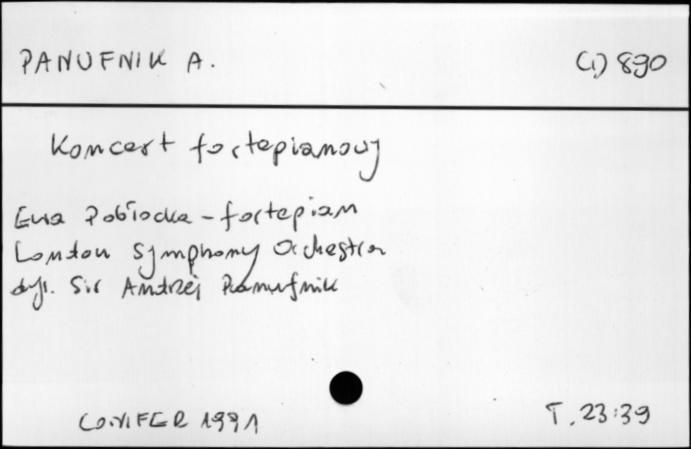 PANUFNIK A. (1) 890
Koncert fortepianowy
Ewa Pobłocka - fortepian
London Symphony Orchestra
dyr. Sir Andrzej Panufnik
CONIFER 1991 T. 23:39